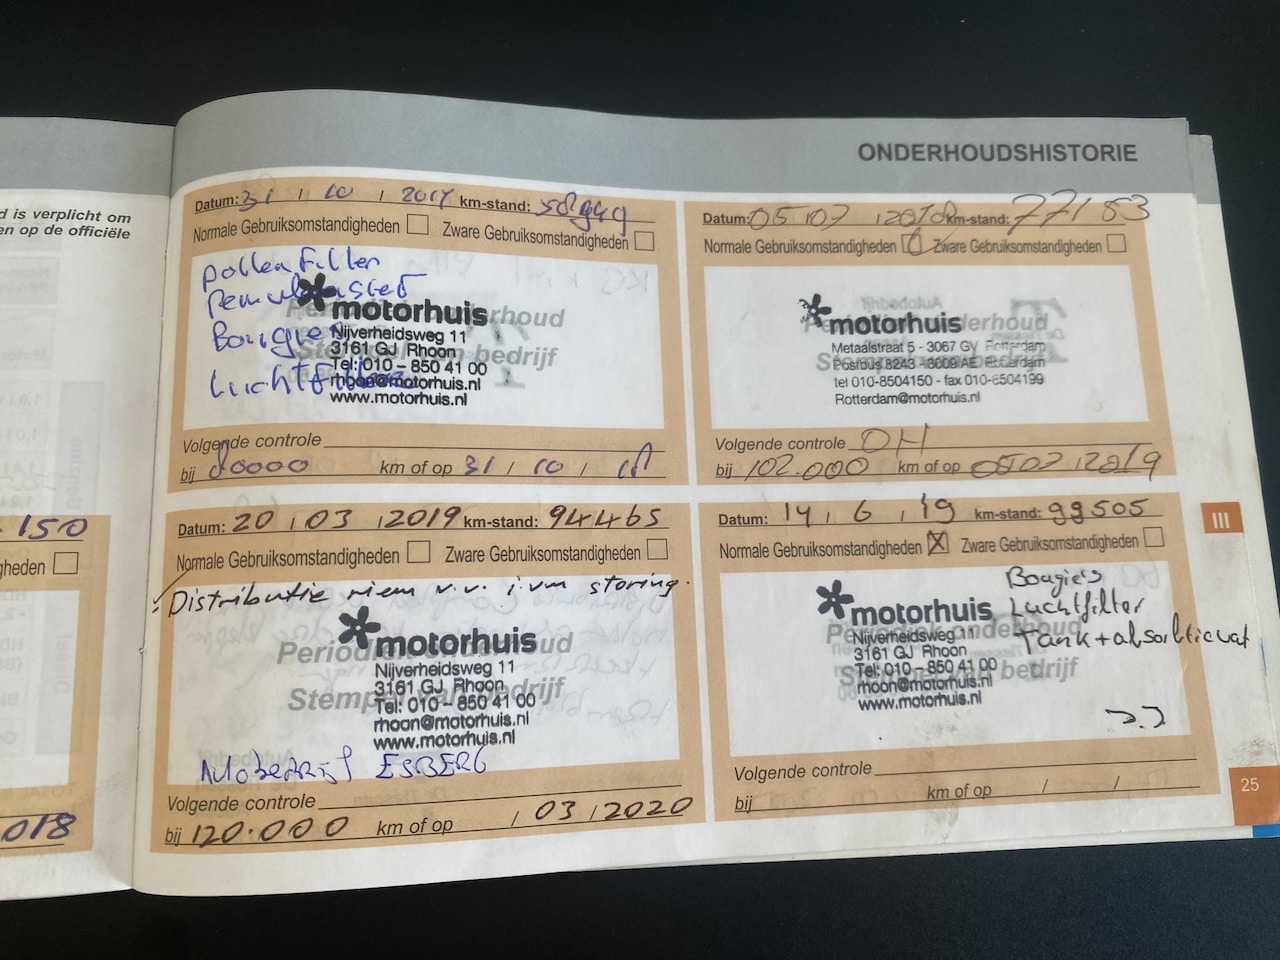 ONDERHOUDSHISTORIE
d is verplicht om
en op de officiële
150
gheden
018
Datum: 31 / 10 / 2017 km-stand:
Normale Gebruiksomstandigheden Zware Gebruiksomstandigheden
pollenfilter
Bougies
Luchtfilter
motorhuis
Nijverheidsweg 11
3161 GJ Rhoon
Tel: 010 - 850 41 00
rhoon@motorhuis.nl
www.motorhuis.nl
Volgende controle
bij 80000 km of op 31 / 10 / 18
Datum: 05 / 07 / 2018 km-stand: 77183
Normale Gebruiksomstandigheden Zware Gebruiksomstandigheden
motorhuis
Metaalstraat 5 - 3067 GV Rotterdam
Postbus 8243 - 3009 AE Rotterdam
tel 010-8504150 - fax 010-8504199
Rotterdam@motorhuis.nl
Volgende controle OH
bij 102.000 km of op 05 07 / 2019
Datum: 20 / 03 / 2019 km-stand: 94465
Normale Gebruiksomstandigheden Zware Gebruiksomstandigheden
Distributie riem v.v. i.v.m storing.
motorhuis
Periodiek onderhoud
Nijverheidsweg 11
3161 GJ Rhoon
Stempel van bedrijf
Tel: 010 - 850 41 00
rhoon@motorhuis.nl
www.motorhuis.nl
Autobedrijf ESBERG
Volgende controle
bij 120.000 km of op / 03 / 2020
Datum: 14 / 6 / 19 km-stand: 99505
Normale Gebruiksomstandigheden X Zware Gebruiksomstandigheden
Bougie's
Luchtfilter
Tank + absorbtievat
motorhuis
Periodiek onderhoud
Nijverheidsweg 11
3161 GJ Rhoon
Tel: 010 - 850 41 00
Stempel van bedrijf
rhoon@motorhuis.nl
www.motorhuis.nl
Volgende controle
bij km of op / /
III
25